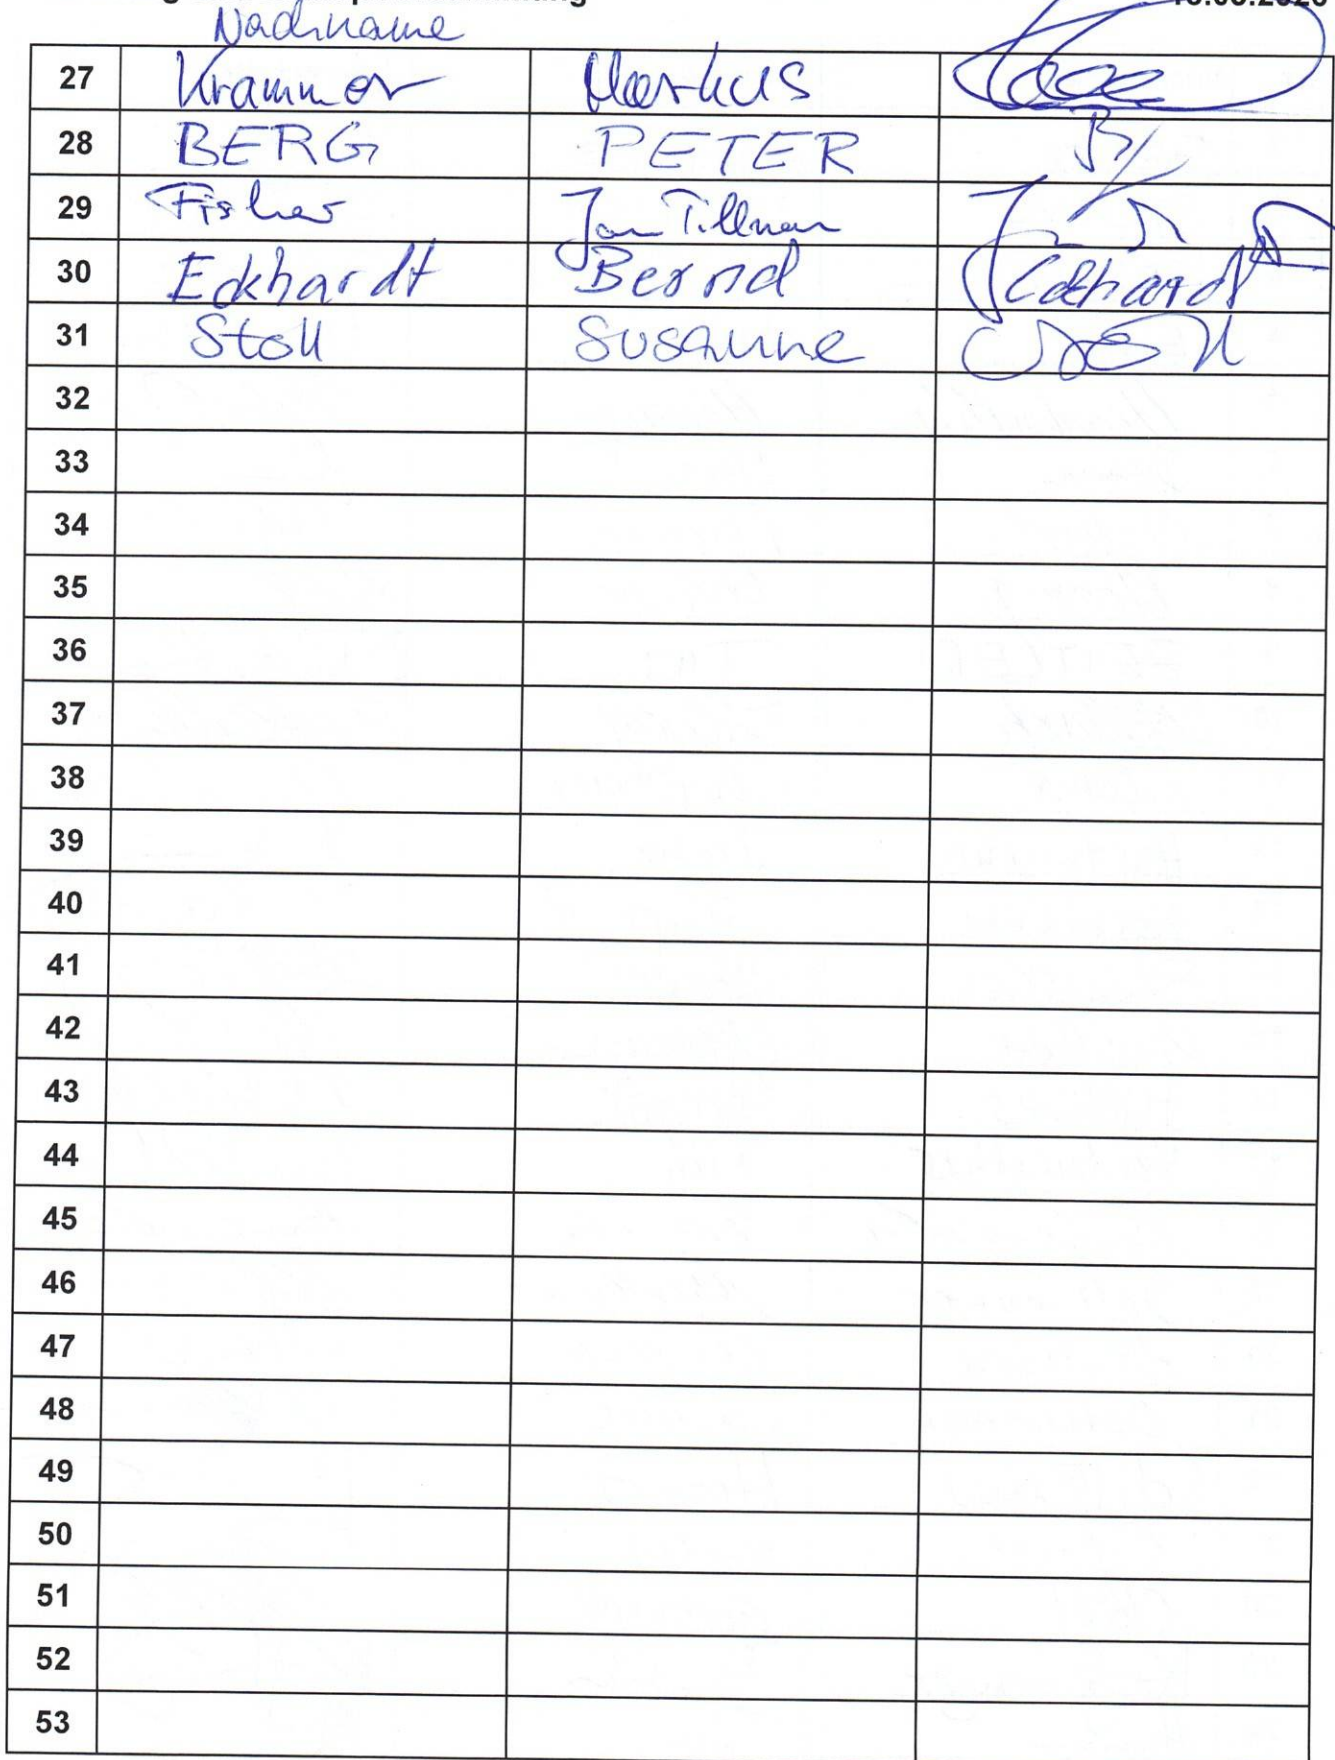 Nachname
27 Krammer Markus
28 BERG PETER B/
29 Fisher Jan Tillman
30 Eckhardt Bernd Eckhardt
31 Stoll Susanne Stoll
32
33
34
35
36
37
38
39
40
41
42
43
44
45
46
47
48
49
50
51
52
53